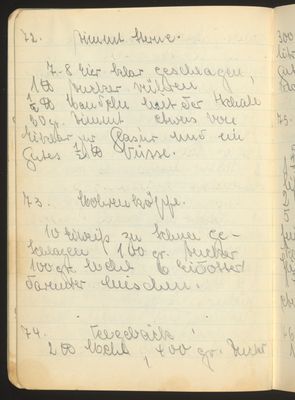 72. Zimmt Sterne.
7-8 Eier klar geschlagen,
1 ℔ Zucker rühren
½ ℔ Mandeln mit der Schale
30 gr. Zimmt etwas von
Eiklar zur Glasur und ein
Gutes ½ ℔ Nüsse.
73. Mohrenköpfe.
10 Eiweiß zu Schnee ge-
schlagen 100 gr. Zucker
100 gr. Mehl 6 Eidotter
darunter mischen.
74. Teegebäck
2 ℔ Mehl, 400 gr. Zucker
300
75.